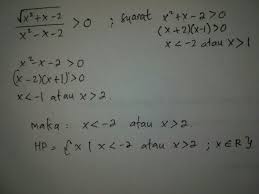 √(x²+x-2) / (x²-x-2) > 0 ; syarat x²+x-2>0
(x+2)(x-1)>0
x<-2 atau x>1
x²-x-2>0
(x-2)(x+1)>0
x<-1 atau x>2
maka: x<-2 atau x>2.
HP = {x | x<-2 atau x>2 ; x∈R}